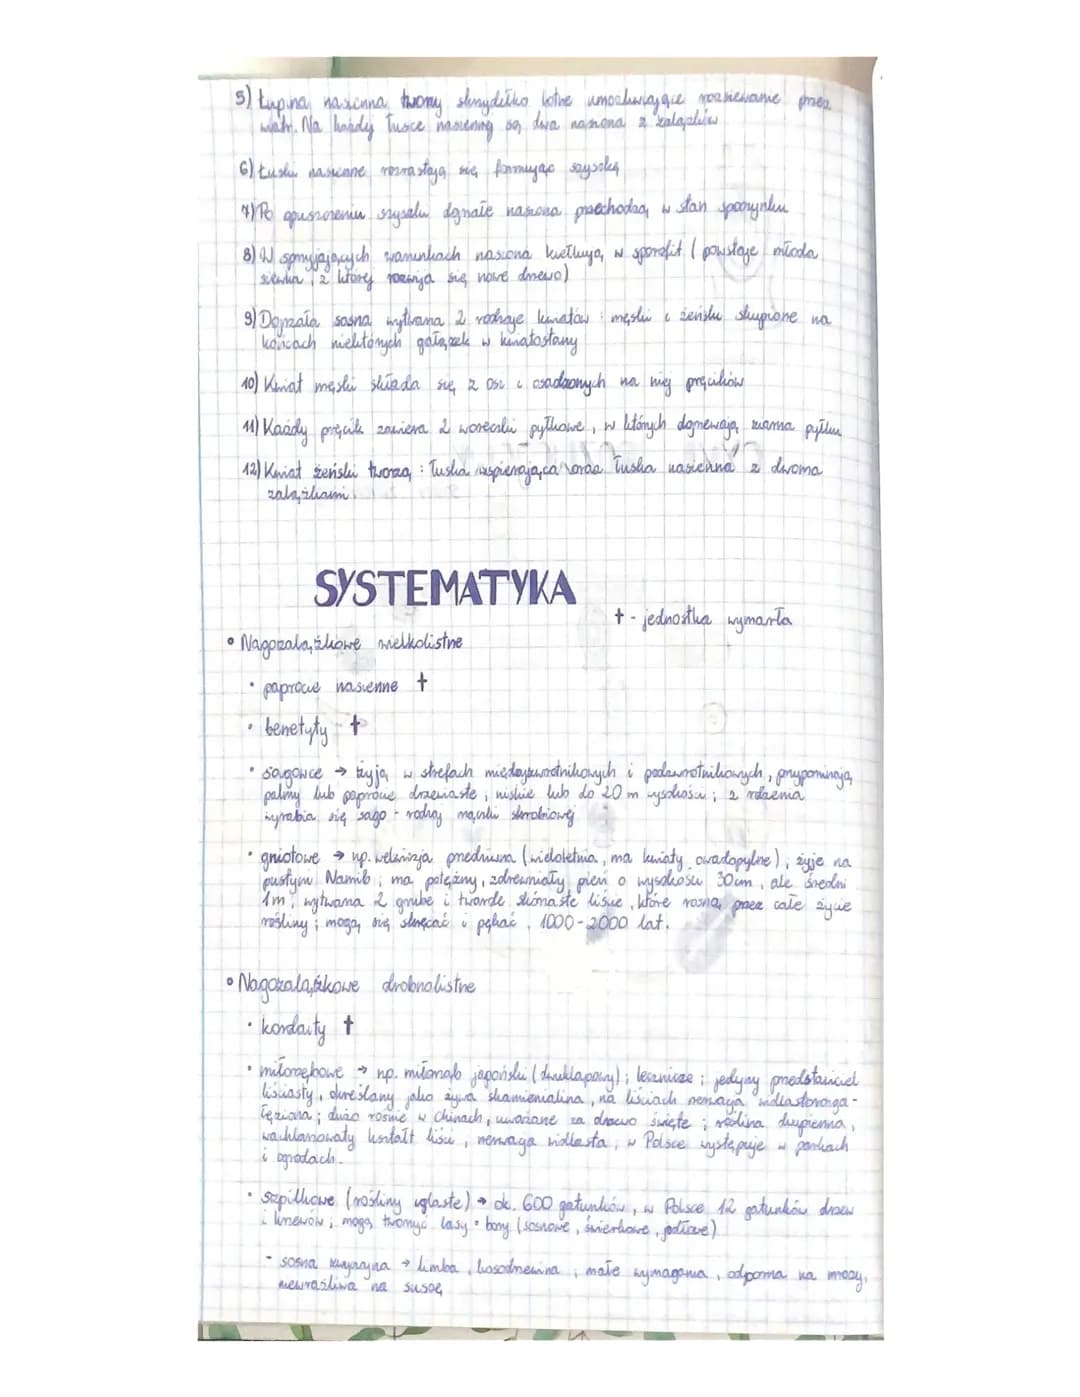 5) Łupina nasienna tworzy skrzydełko lotne umożliwiające rozsiewanie przez
wiatr. Na każdej łusce nasiennej są dwa nasiona z zalążków
6) Łuski nasienne rozrastają się formując szyszkę
7) Po opuszczeniu szyszki dojrzałe nasiona przechodzą w stan spoczynku
8) W sprzyjających warunkach nasiona kiełkują w sporofit ( powstaje młoda
siewka, z której rozwija się nowe drzewo)
9) Dojrzała sosna wytwarza 2 rodzaje kwiatów : męski i żeński skupione na
końcach niektórych gałązek w kwiatostany
10) Kwiat męski składa się z osi i osadzonych na niej pręcików
11) Każdy pręcik zawiera 2 woreczki pyłkowe, w których dojrzewają ziarna pyłku
12) Kwiat żeński tworzą : łuska wspierająca oraz łuska nasienna z dwoma
zalążkami
SYSTEMATYKA
† - jednostka wymarła
• Nagozalążkowe wielkolistne
• paprocie nasienne †
• benetyty †
• sagowce → żyją w strefach międzyzwrotnikowych i podzwrotnikowych, przypominają
palmy lub paprocie drzewiaste ; niskie lub do 20 m wysokości ; z rdzenia
wyrabia się sago - rodzaj mączki skrobiowej
• gniotowe → np. welwiczja przedziwna (wieloletnia, ma kwiaty owadopylne) ; żyje na
pustyni Namib ; ma potężny, zdrewniały pień o wysokości 30cm, ale średni
1m ; wytwarza 2 grube i twarde skórzaste liście, które rosną przez całe życie
rośliny ; mogą się skręcać i pękać, 1000-2000 lat.
• Nagozalążkowe drobnolistne
• kordaity †
• miłorzębowe → np. miłorząb japoński (dwuklapowy) ; lecznicze ; jedyny przedstawiciel
liściasty, określany jako żywa skamienialina, na liściach nerwacja widlasto
; dużo rośnie w Chinach, uważane za drzewo święte ; roślina dwupienna,
wachlarzowaty kształt liści, nerwacja widlasta, w Polsce występuje w parkach
i ogrodach.
• szpilkowe (rośliny iglaste) → ok. 600 gatunków, w Polsce 12 gatunków drzew
i krzewów ; mogą tworzyć lasy - bory (sosnowe, świerkowe, jodłowe)
- sosna zwyczajna → limba, kosodrzewina ; małe wymagania, odporna na mrozy,
niewrażliwa na suszę